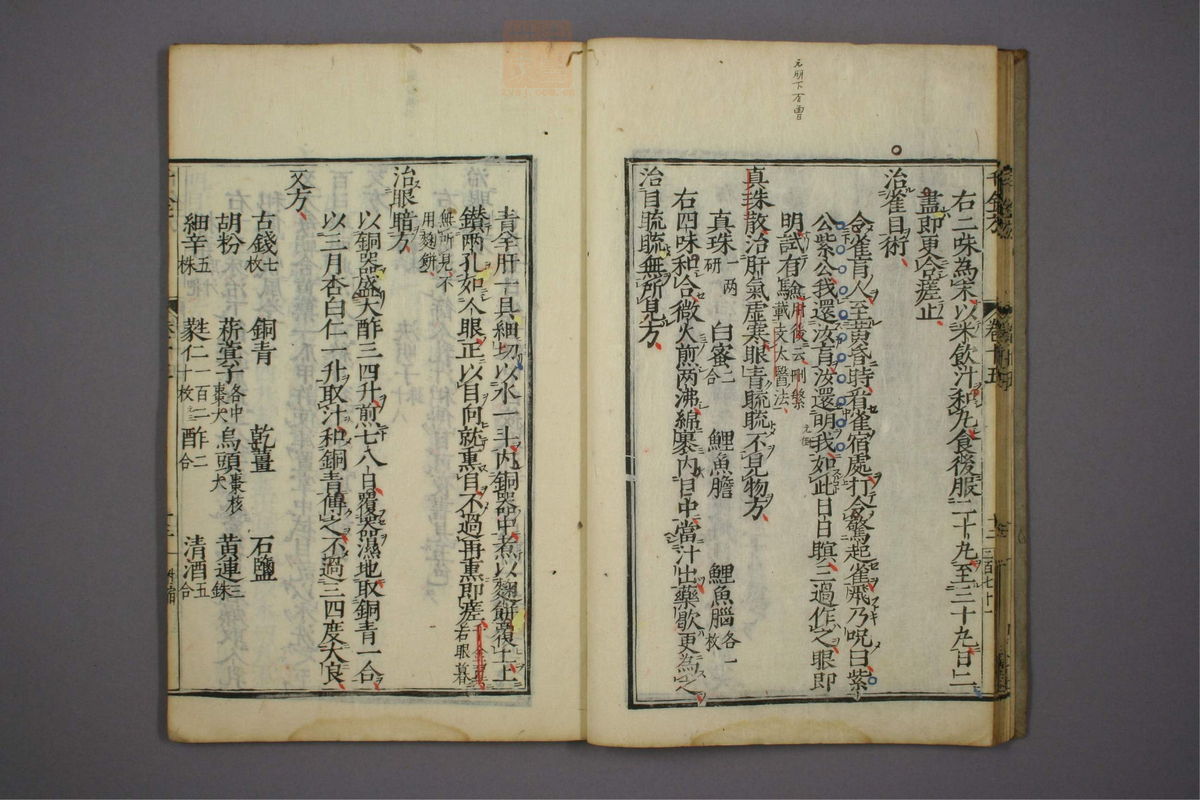 右二味為末以米飲汁和丸食後服二十九至三十九日二
盡即更合瘥止
治雀目術
令雀盲人至黃昏時看雀宿處打令驚起雀飛乃呪曰紫
公紫公我還汝盲汝還明我如此日日暝三過作之眼即
明試有驗肘後云刪繁載支太醫法
真珠散治肝氣虛寒眼青䀮䀮不見物方
真珠一兩研 白蜜二合 鯉魚膽 鯉魚腦各一枚
右四味和合微火煎兩沸綿裹內目中當汁出藥歇更為之
治目䀮䀮無所見方
青羊肝一具細切以水一斗內銅器中煮以麴餅覆上上
鑽兩孔如人眼正以目向就熏目不過再熏即瘥千金翼云眼暮無所見不用麴餅
治眼暗方
以銅器盛大酢三四升煎七八日覆器濕地取銅青一合
以三月杏白仁一升取汁和銅青傅之不過三四度大良
又方
古錢七枚 銅青 乾薑 石鹽
胡粉 菥蓂子各中棗大 烏頭棗核大 黃連三銖
細辛五株 蕤仁一百二十枚 酢二合 清酒五合